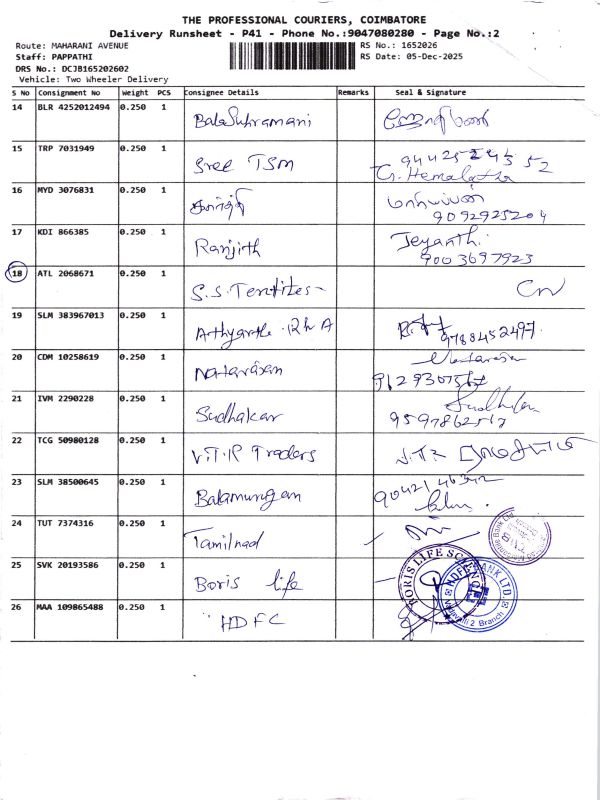 THE PROFESSIONAL COURIERS, COIMBATORE
Delivery Runsheet - P41 - Phone No.:9047080280 - Page No.:2
Route: MAHARANI AVENUE
Staff: PAPPATHI
DRS No.: DCJB165202602
Vehicle: Two Wheeler Delivery
RS No.: 1652026
RS Date: 05-Dec-2025
S No Consignment No Weight PCS Consignee Details Remarks Seal & Signature
14 BLR 4252012494 0.250 1 BalaSubramani
15 TRP 7031949 0.250 1 Sree TSM
G. Hemalatha
16 MYD 3076831 0.250 1 கார்த்தி
9092925204
17 KDI 866385 0.250 1 Ranjith Jeyanthi
9003697923
18 ATL 2068671 0.250 1 S.S. Textiles CN
19 SLM 383967013 0.250 1
9788452497
20 CDM 10258619 0.250 1 Natarasan Natarasan
21 IVM 2290228 0.250 1 Sudhakar Sudhakar
9597862517
22 TCG 50980128 0.250 1 V.T.R Traders
23 SLM 38500645 0.250 1 Balamurugan
24 TUT 7374316 0.250 1 Tamilnad
25 SVK 20193586 0.250 1 Boris life BORIS LIFE SCIENCES
26 MAA 109865488 0.250 1 HDFC HDFC BANK LTD
Vadavalli 2 Branch